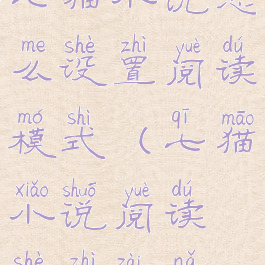 me shè zhì yuè dú
么设置阅读
mó shì qī māo
模式（七猫
xiǎo shuō yuè dú
小说阅读
shè zhì zài nǎ